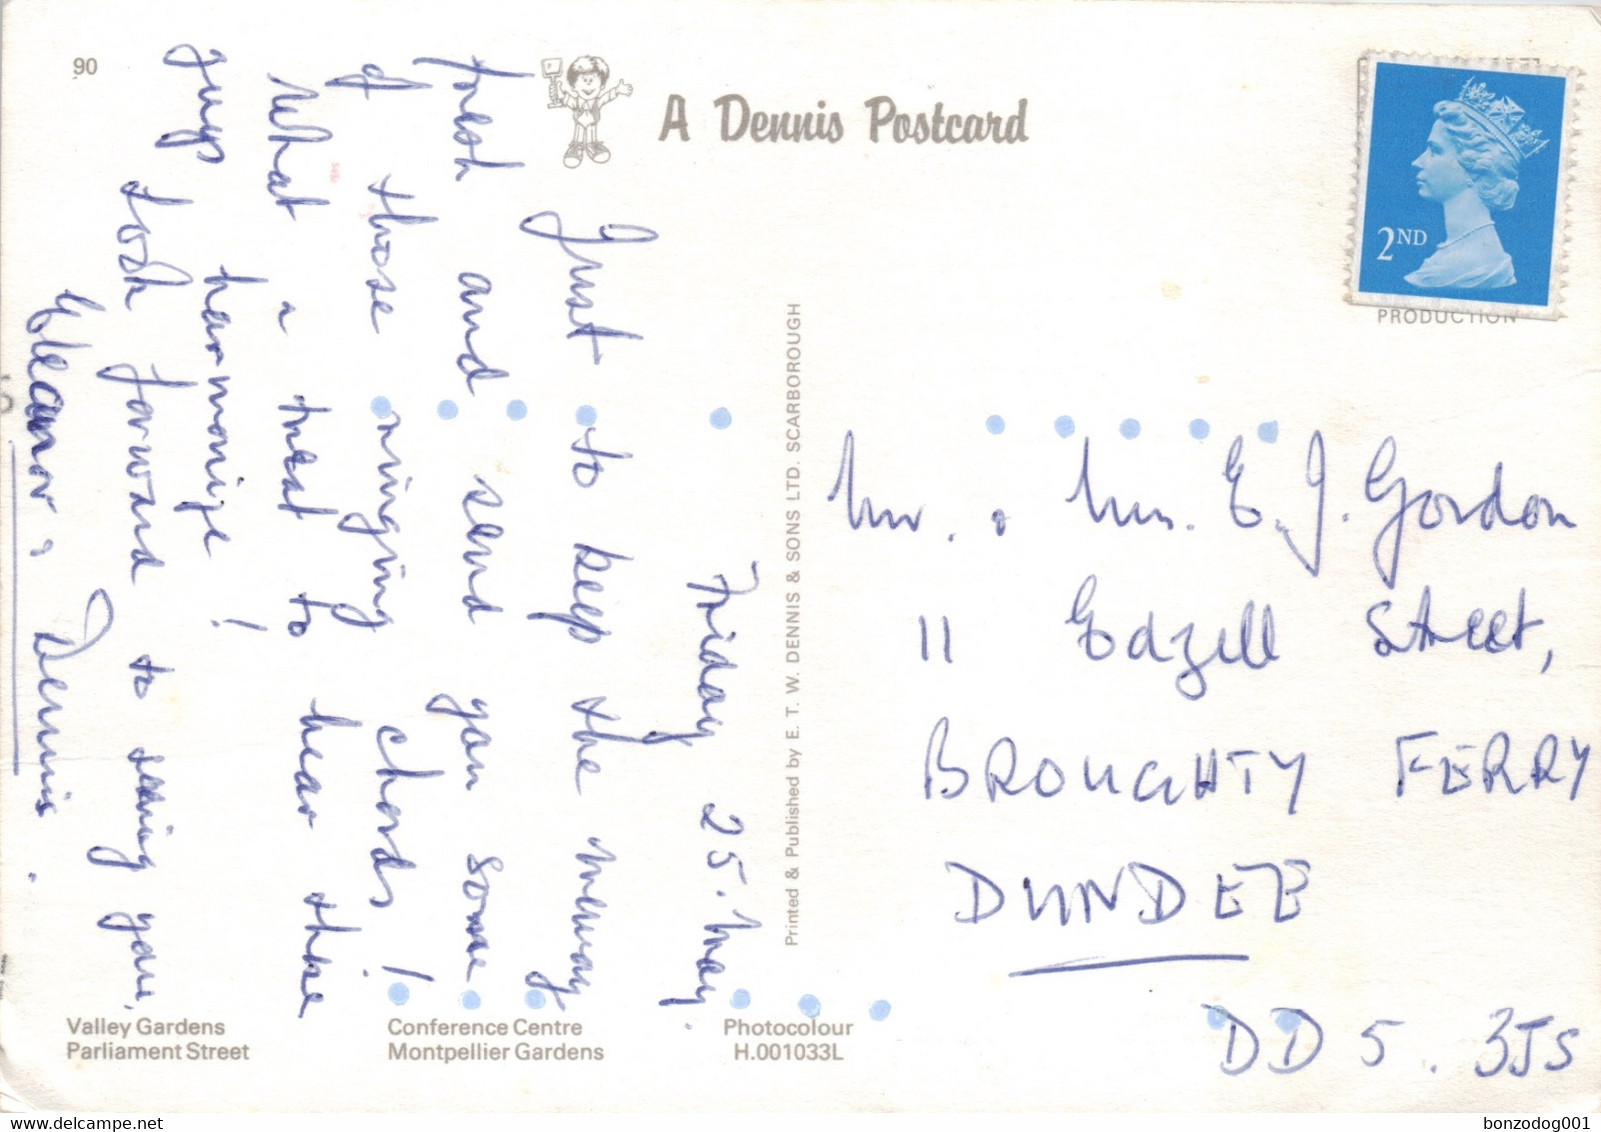 90
A Dennis Postcard
2ND
PRODUCTION
Friday 25. May.
Just to keep the memory
fresh and send you some
of those ringing chords!
What a treat to hear those
guys harmonize!
Look forward to seeing you,
Eleanor & Dennis.
Printed & Published by E. T. W. DENNIS & SONS LTD. SCARBOROUGH
Mr. & Mrs. E. J. Gordon
11 Edzell Street,
BROUGHTY FERRY
DUNDEE
DD5. 3JS
Valley Gardens
Parliament Street
Conference Centre
Montpellier Gardens
Photocolour
H.001033L
delcampe.net
bonzodog001